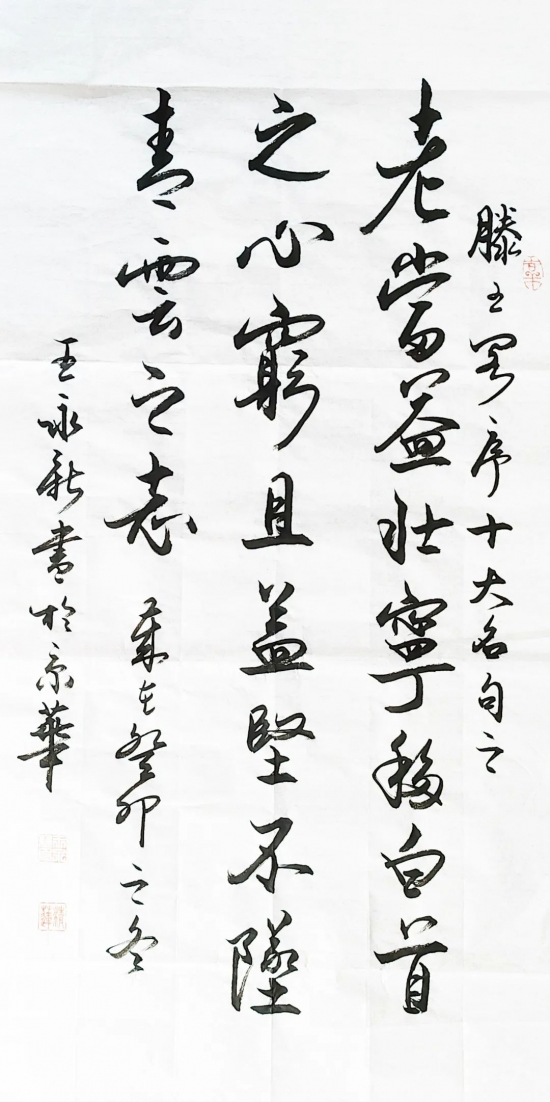 滕王阁序十大名句之
老當益壯寧移白首
之心窮且益堅不墜
青雲之志 歲在癸卯之冬
王永新書於京華